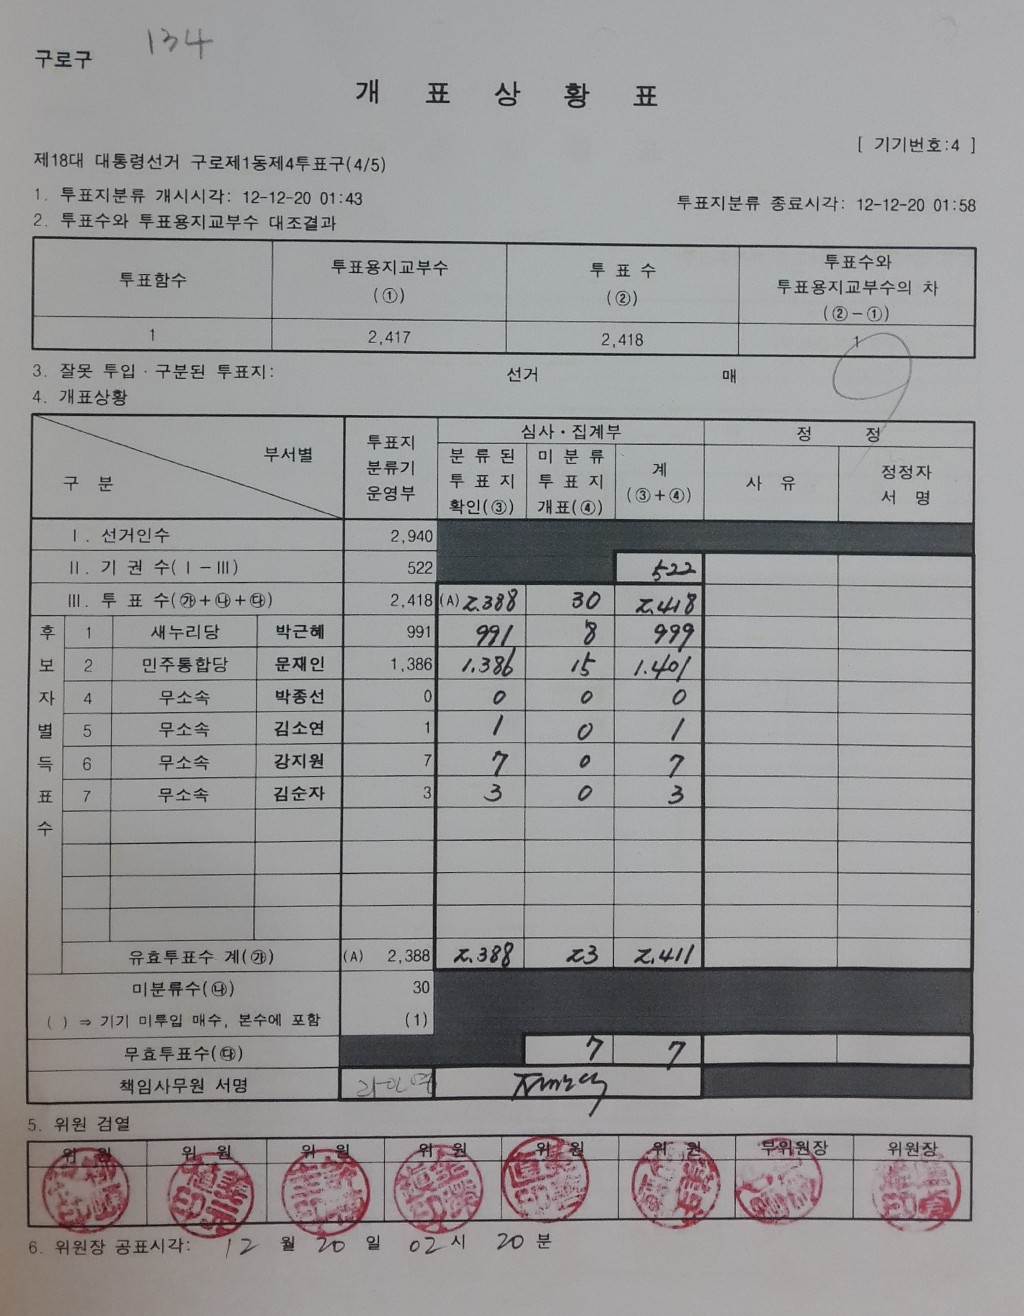 134
구로구
개 표 상 황 표
[ 기기번호:4 ]
제18대 대통령선거 구로제1동제4투표구(4/5)
1. 투표지분류 개시시각: 12-12-20 01:43
투표지분류 종료시각: 12-12-20 01:58
2. 투표수와 투표용지교부수 대조결과
투표함수 투표용지교부수 (①) 투 표 수 (②) 투표수와 투표용지교부수의 차 (②-①)
1 2,417 2,418 1
3. 잘못 투입·구분된 투표지: 선거 매
4. 개표상황
구 분 부서별 투표지 분류기 운영부 심사·집계부 정 정
분 류 된 투 표 지 확인(③) 미 분 류 투 표 지 개표(④) 계 (③+④) 사 유 정정자 서 명
Ⅰ. 선거인수 2,940
Ⅱ. 기 권 수(Ⅰ-Ⅲ) 522 522
Ⅲ. 투 표 수(㉮+㉯+㉰) 2,418 (A) 2.388 30 2.418
후보자별득표수
1 새누리당 박근혜 991 991 8 999
2 민주통합당 문재인 1,386 1.386 15 1.401
4 무소속 박종선 0 0 0 0
5 무소속 김소연 1 1 0 1
6 무소속 강지원 7 7 0 7
7 무소속 김순자 3 3 0 3
유효투표수 계(㉮) (A) 2,388 2.388 23 2.411
미분류수(㉯) 30
( ) ⇒ 기기 미투입 매수, 본수에 포함 (1)
무효투표수(㉰) 7 7
책임사무원 서명
5. 위원 검열
위 원 위 원 위 원 위 원 위 원 위 원 부위원장 위원장
6. 위원장 공표시각: 12 월 20 일 02 시 20 분